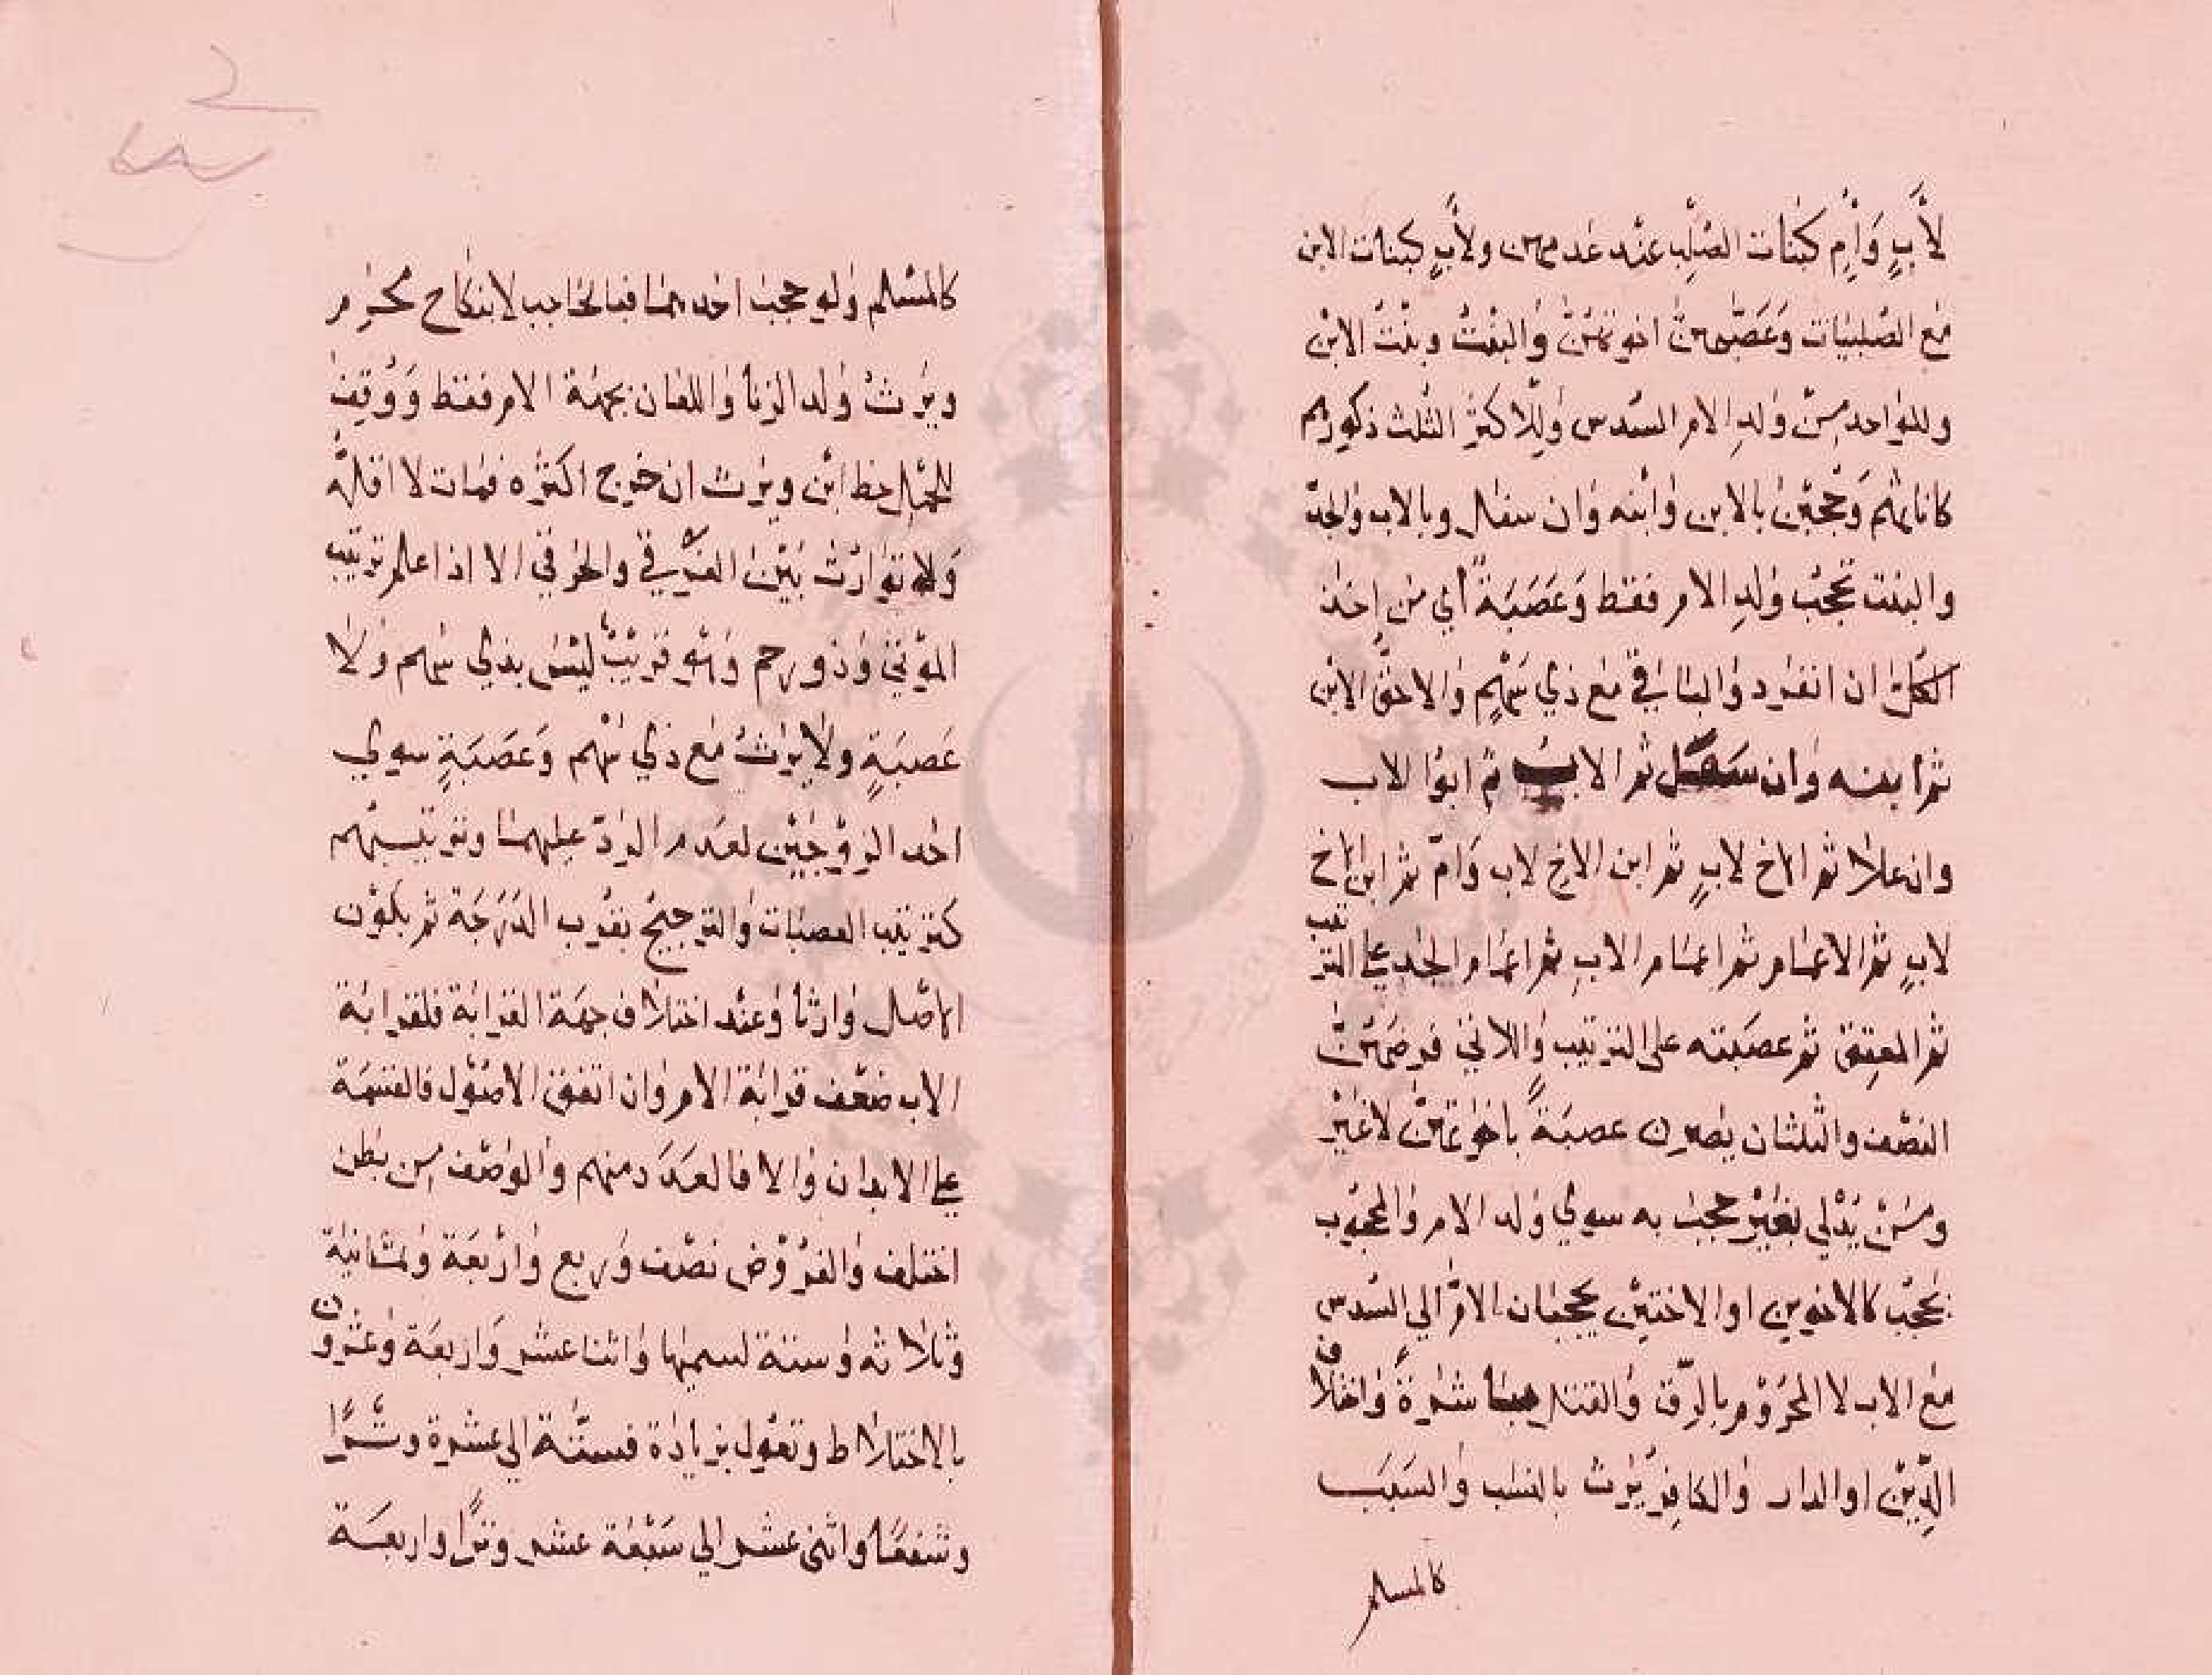 لأَبٍ وَأُمٍ كبَنات الصُلْبِ عنْد عَدمهن ولأَبٍ كبنات الابن
مَع الصُلبيَات وَعَصَّبهنّ اخوتهُنّ وَالبنْتُ وبنْتُ الابْن
وللوَاحد مِنْ وَلدِ الام السُدس وَللأكثر الثُلث ذكورهم
كاناثهم وَحُجبْن بالابن وَابْنه وَان سفل وبالاب وَالجدّ
والبنت تحجُب وَلدِ الام فقط وَعَصَبَةً أي من اخذ
الكُلّ ان انفرد وَالبَاقي مَع ذي سَهْمٍ وَالاحَقُّ الابْن
ثم ابنه وَان سَفل ثم الاب ثم ابوُا الاب
وان علا ثم الاخ لابٍ ثم ابن الاخ لاب وَامّ ثم ابن الاخ
لابٍ ثم الاعمام ثم اعمام الابِ ثم اعمام الجد علي الترتيب
ثم المعتِق ثم عصَبته على الترتيب وَاللاتي فرضهُنّ
النصْف والثلثان يصرن عصبَةً باخوَتهنّ لا غَيْر
ومَنْ يُدْلي بغَيْر حجب به سوي وَلد الام وَالمحجُوب
يَحجُب كالاخوين او الاختيْن يحجبان الامّ الي السُدس
مَع الاب لا المحرُوْم بالرِّق وَالقتل مباشرةً وَاختلاف
الدِّيْن او الدار وَالكافِرُ يُرث بالنسَب وَالسَبَب
كالمسلم
كالمسْلم وَلو حجب احدهما فبالحَاجب لا بنكَاح محرم
ويَرثُ وَلد الزنا وَاللعَان بجهَة الام فقط وَوُقِف
للحمْل حظ ابْن ويَرث ان خرج اكثرُه فمَات لا اقلّه
وَلا توَارُث بَيْن الغرقي والحرقي الا اذا علم ترتيب
الموْتي وَذو رحم وَهُو قَريْبٌ ليْسَ بذي سَهم وَلا
عَصبَةٍ ولا يرثُ مَع ذي سَهْم وَعَصَبَةٍ سوي
احَد الزوْجَيْن لعَدم الردّ عليهمَا وترتيبهم
كترتيب العصبَات وَالترجيحُ بقُرب الدَرَجَة ثم بكوْن
الاصْل وَارثا وَعنْد اختلاف جهَة القرابَة فلقرابَة
الاب ضعْف قرابَة الام وَان اتفق الاصُوْل فالقسْمَة
علي الابدان وَالا فالعدَد منهم وَالوَصْف مِن بطن
اختلف وَالفرُوْض نصْف وَربع وَاربَعَة وَثمَانية
وَثلاثه وَستة لسميهَا وَاثنا عشر وَاربعَة وَعشرون
بالاختلاط وتعُول بزيادَة فستَّة الي عشرة وتْرًا
وشفعًا واثني عشر الي سَبْعَة عشر وترًا واربعَة